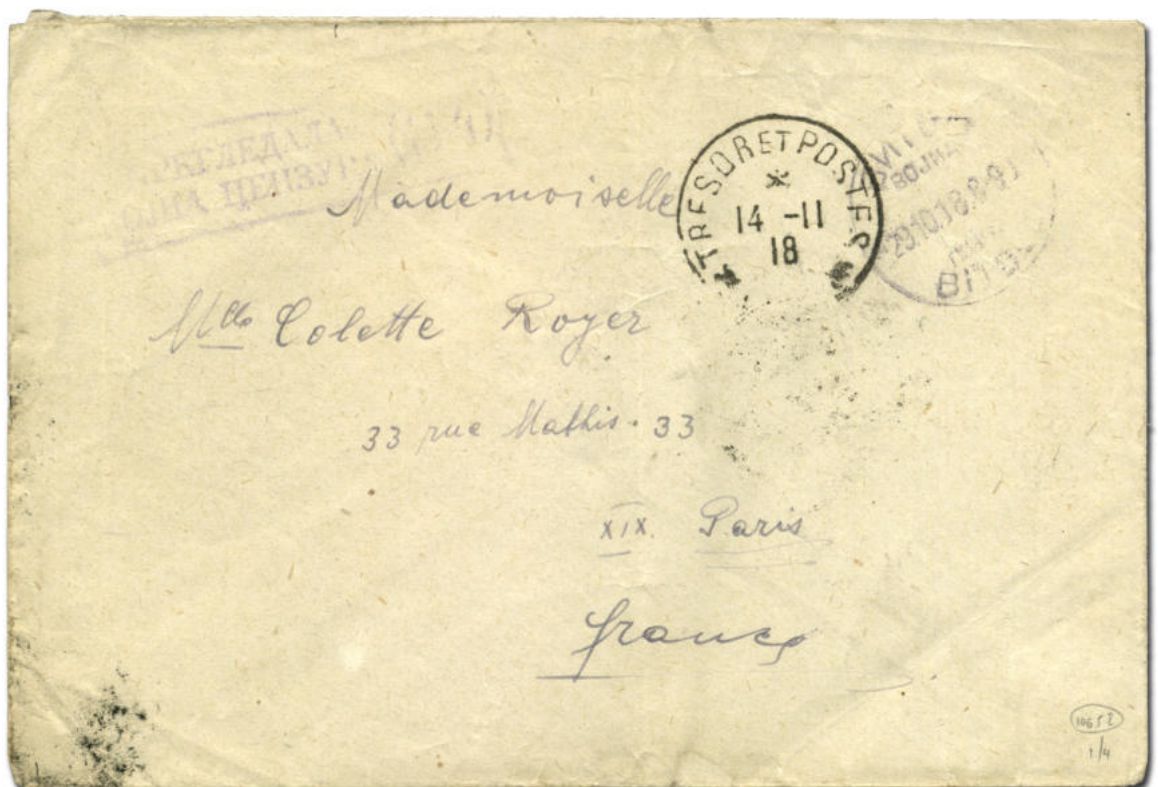 ЦЕНЗУР
Mademoiselle
TRESOR ET POSTES
14 -11
18
29.10.18.8-9
Mlle Colette Royer
33 rue Mathis. 33
XIX. Paris
France
1/4